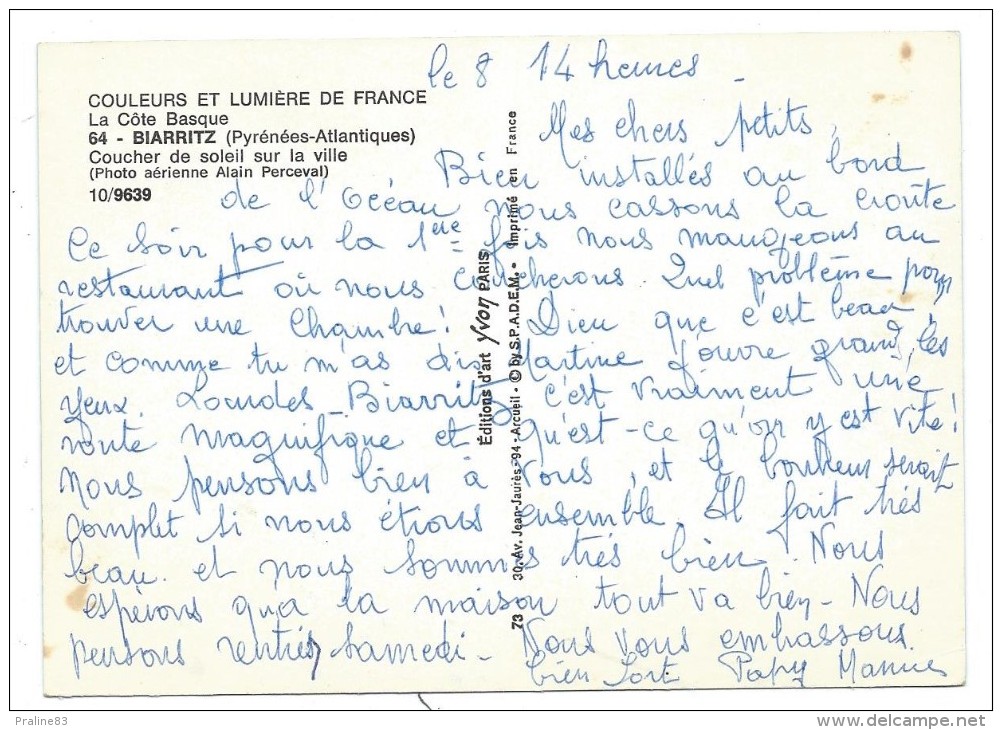 le 8 14 heures -
COULEURS ET LUMIÈRE DE FRANCE
La Côte Basque
64 - BIARRITZ (Pyrénées-Atlantiques)
Coucher de soleil sur la ville
(Photo aérienne Alain Perceval)
10/9639
Mes chers petits,
Bien installés au bord
de l'Océan nous cassons la croûte
Ce soir pour la 1ère fois nous mangeons au
restaurant où nous coucherons. Quel problème pour
trouver une chambre! Dieu que c'est beau,
et comme tu m'as dis Martine j'ouvre grand les
yeux. Lourdes - Biarritz c'est vraiment une
route magnifique et qu'est-ce qu'on y est vite!
Nous pensons bien à vous, et le bonheur serait
complet si nous étions ensemble. Il fait très
beau. et nous sommes très bien. Nous
espérons qu'a la maison tout va bien - Nous
pensons rentrer samedi - Nous vous embrassons
bien fort Papy
Éditions d'art Yvon PARIS
73 30, Av. Jean-Jaurès-94-Arcueil - © by S.P.A.D.E.M. - Imprimé en France
Praline83
www.delcampe.net